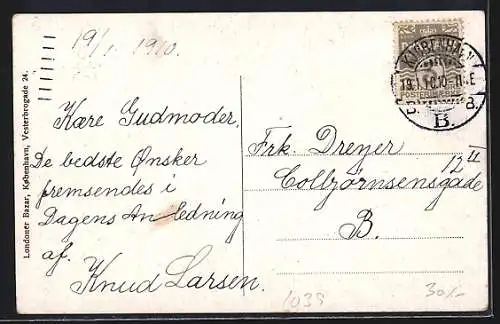 19/1 1910.
Kære Gudmoder,
De bedste Ønsker
fremsendes i
Dagens Anledning
af.
Knud Larsen.
Frk. Dreyer
12 4
Colbjørnsensgade
B.
KJØBENHAVN
19.1.10.10-11.E
B.
POSTFRIMÆRKE
Londoner Bazar, København, Vesterbrogade 24.
1038
30/-